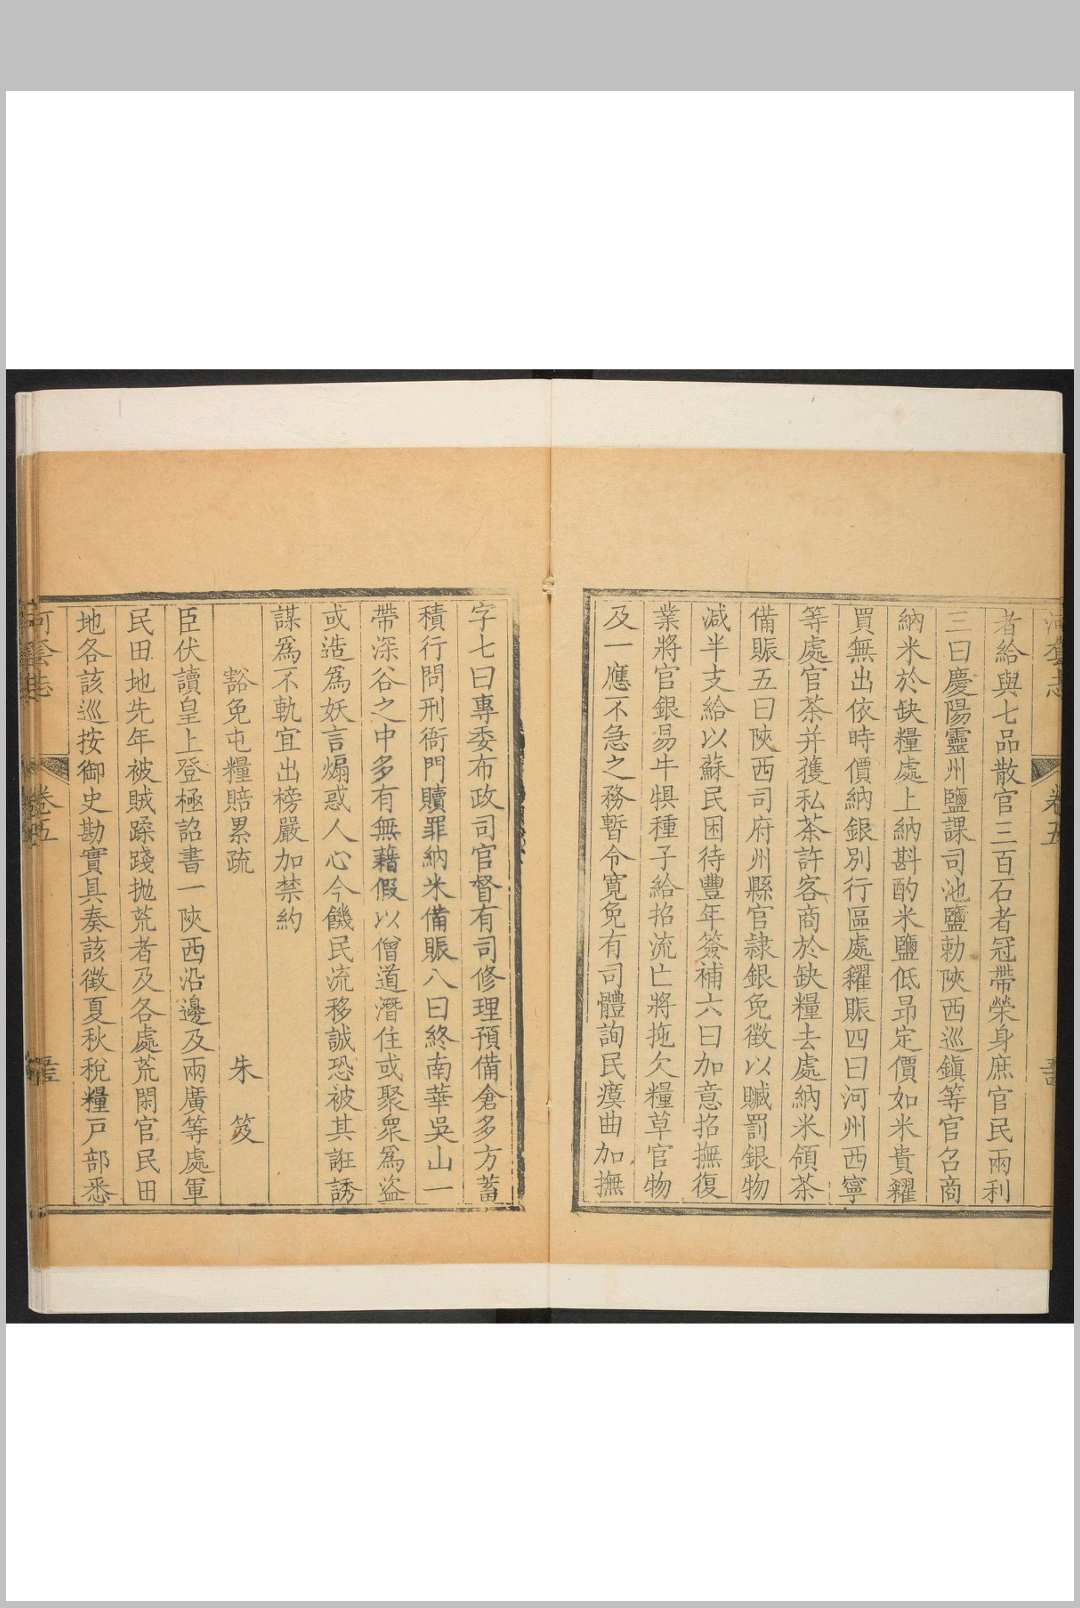 河套志
卷五
者給與七品散官三百石者冠帶榮身庶官民兩利
三曰慶陽靈州鹽課司池鹽勅陝西巡鎮等官召商
納米於缺糧處上納斟酌米鹽低昻定價如米貴糴
買無出依時價納銀別行區處糴賑四曰河州西寧
等處官茶并獲私茶許客商於缺糧去處納米領茶
備賑五曰陝西司府州縣官隷銀免徵以贓罰銀物
減半支給以蘇民困待豐年簽補六曰加意招撫復
業將官銀昜牛犋種子給招流亡將拖欠糧草官物
及一應不急之務暫令寬免有司體詢民瘼曲加撫
字七曰專委布政司官督有司修理預備倉多方蓄
積行問刑衙門贖罪納米備賑八曰終南華吳山一
帶深谷之中多有無藉假以僧道潛住或聚衆爲盜
或造爲妖言煽惑人心今饑民流移誠恐被其誑誘
謀爲不軌宜出榜嚴加禁約
豁免屯糧賠累疏
朱笈
臣伏讀皇上登極詔書一陝西沿邊及兩廣等處軍
民田地先年被賊蹂踐抛荒者及各處荒閑官民田
地各該巡按御史勘實具奏該徵夏秋稅糧戸部悉
河套志
卷五